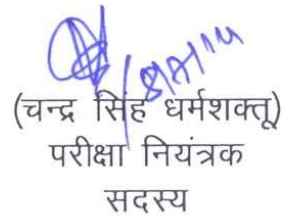 (चन्द्र सिंह धर्मशक्तू)
परीक्षा नियंत्रक
सदस्य